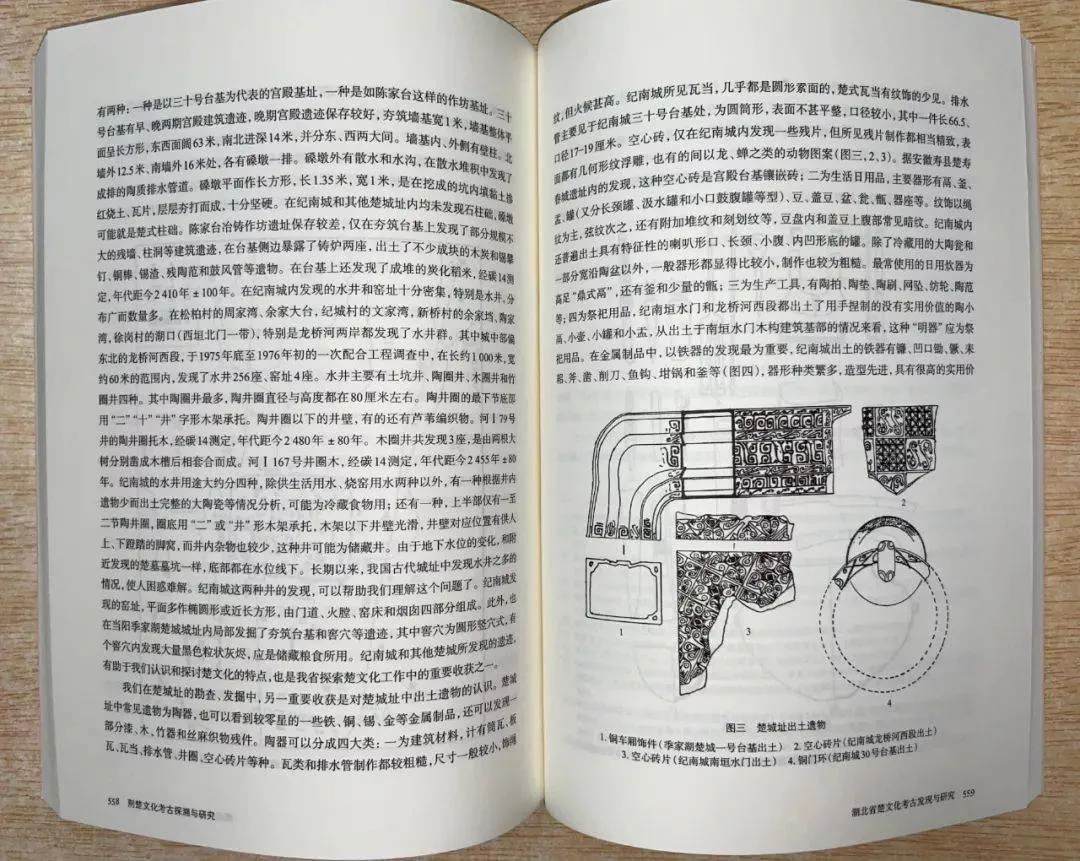 有两种：一种是以三十号台基为代表的宫殿基址，一种是如陈家台这样的作坊基址。三十
号台基有早、晚两期宫殿建筑遗迹，晚期宫殿遗迹保存较好，夯筑墙基宽1米，墙基整体平
面呈长方形，东西面阔63米，南北进深14米，并分东、西两大间。墙基内、外侧有壁柱。北
墙外12.5米、南墙外16米处，各有磉墩一排。磉墩外有散水和水沟，在散水堆积中发现了
成排的陶质排水管道。磉墩平面作长方形，长1.35米，宽1米，是在挖成的坑内填黏土掺
红烧土、瓦片，层层夯打而成，十分坚硬。在纪南城和其他楚城址内均未发现石柱础，磉墩
可能就是楚式柱础。陈家台冶铸作坊遗址保存较差，仅在夯筑台基上发现了部分规模不
大的残墙、柱洞等建筑遗迹，在台基侧边暴露了铸炉两座，出土了不少成块的木炭和锡攀
钉、铜棒、锡渣、残陶范和鼓风管等遗物。在台基上还发现了成堆的炭化稻米，经碳14测
定，年代距今2410年±100年。在纪南城内发现的水井和窑址十分密集，特别是水井，分
布广而数量多。在松柏村的周家湾、余家大台，纪城村的文家湾，新桥村的余家垱、陶家
湾，徐岗村的湖口（西垣北门一带），特别是龙桥河两岸都发现了水井群。其中城中部偏
东北的龙桥河西段，于1975年底至1976年初的一次配合工程调查中，在长约1000米，宽
约60米的范围内，发现了水井256座、窑址4座。水井主要有土坑井、陶圈井、木圈井和竹
圈井四种。其中陶圈井最多，陶井圈直径与高度都在80厘米左右。陶井圈的最下节底部
用“二”“十”“井”字形木架承托。陶井圈以下的井壁，有的还有芦苇编织物。河Ⅰ79号
井的陶井圈托木，经碳14测定，年代距今2480年±80年。木圈井共发现3座，是由两根大
树分别凿成木槽后相套合而成。河Ⅰ167号井圈木，经碳14测定，年代距今2455年±80
年。纪南城的水井用途大约分四种，除供生活用水、烧窑用水两种以外，有一种根据井内
遗物少而出土完整的大陶瓮等情况分析，可能为冷藏食物用；还有一种，上半部仅有一至
二节陶井圈，圈底用“二”或“井”形木架承托，木架以下井壁光滑，井壁对应位置有供人
上、下蹬踏的脚窝，而井内杂物也较少，这种井可能为储藏井。由于地下水位的变化，和附
近发现的楚墓墓坑一样，底部都在水位线下。长期以来，我国古代城址中发现水井之多的
情况，使人困惑难解。纪南城这两种井的发现，可以帮助我们理解这个问题了。纪南城发
现的窑址，平面多作椭圆形或近长方形，由门道、火膛、窑床和烟囱四部分组成。此外，也
在当阳季家湖楚城城址内局部发掘了夯筑台基和窖穴等遗迹，其中窖穴为圆形竖穴式，有
个窖穴内发现大量黑色粒状灰烬，应是储藏粮食所用。纪南城和其他楚城所发现的遗迹，
有助于我们认识和探讨楚文化的特点，也是我省探索楚文化工作中的重要收获之一。
我们在楚城址的勘查、发掘中，另一重要收获是对楚城址中出土遗物的认识。楚城
址中常见遗物为陶器，也可以看到较零星的一些铁、铜、锡、金等金属制品，还可以发现一
部分漆、木、竹器和丝麻织物残件。陶器可以分成四大类：一为建筑材料，计有筒瓦、板
瓦、瓦当、排水管、井圈、空心砖片等种。瓦类和排水管制作都较粗糙，尺寸一般较小，饰绳
558 荆楚文化考古探溯与研究
纹，但火候甚高。纪南城所见瓦当，几乎都是圆形素面的，楚式瓦当有纹饰的少见。排水
管主要见于纪南城三十号台基处，为圆筒形，表面不甚平整，口径较小，其中一件长66.5、
口径17-19厘米。空心砖，仅在纪南城内发现一些残片，但所见残片制作都相当精致，表
面都有几何形纹浮雕，也有的间以龙、蝉之类的动物图案（图三，2、3）。据安徽寿县楚寿
春城遗址内的发现，这种空心砖是宫殿台基镶嵌砖；二为生活日用品，主要器形有鬲、釜、
盂、罐（又分长颈罐、汲水罐和小口鼓腹罐等型）、豆、盖豆、盆、瓮、甑、器座等。纹饰以绳
纹为主，弦纹次之，还有附加堆纹和刻划纹等，豆盘内和盖豆上腹部常见暗纹。纪南城内
还普遍出土具有特征性的喇叭形口、长颈、小腹、内凹形底的罐。除了冷藏用的大陶瓮和
一部分宽沿陶盆以外，一般器形都显得比较小，制作也较为粗糙。最常使用的日用炊器为
高足“鼎式鬲”，还有釜和少量的甑；三为生产工具，有陶拍、陶垫、陶刷、网坠、纺轮、陶范
等；四为祭祀用品，纪南垣水门和龙桥河西段都出土了用手捏制的没有实用价值的陶小
鬲、小壶、小罐和小盂，从出土于南垣水门木构建筑基部的情况来看，这种“明器”应为祭
祀用品。在金属制品中，以铁器的发现最为重要，纪南城出土的铁器有镰、凹口锄、镢、耒
耜、斧、凿、削刀、鱼钩、坩锅和釜等（图四），器形种类繁多，造型先进，具有很高的实用价
1
2
1
3
4
图三 楚城址出土遗物
1. 铜车厢饰件（季家湖楚城一号台基出土） 2. 空心砖片（纪南城龙桥河西段出土）
3. 空心砖片（纪南城南垣水门出土） 4. 铜门环（纪南城30号台基出土）
湖北省楚文化考古发现与研究 559